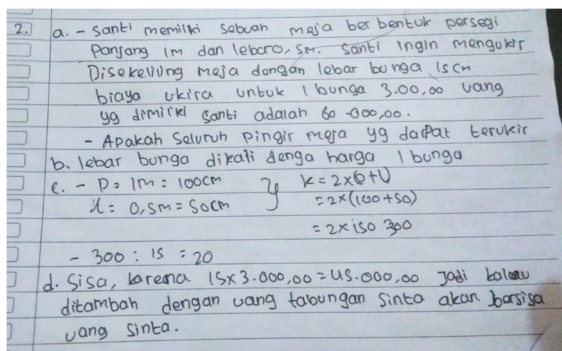 2. a. - Santi memiliki Sebuah meja ber bentuk persegi
Panjang 1m dan lebar 0,5m. Santi ingin mengukir
Disekeliling meja dengan lebar bunga 15cm
biaya ukira untuk 1 bunga 3.00,00 uang
yg dimiliki Santi adalah 60.000,00.
- Apakah Seluruh pingir meja yg dapat terukir
b. lebar bunga dikali denga harga 1 bunga
c. - P = 1m = 100cm } K = 2x(P+l)
l = 0,5m = 50cm = 2x(100+50)
= 2x150 300
- 300 : 15 = 20
d. Sisa, karena 15x3.000,00 = 45.000,00 Jadi kalau
ditambah dengan uang tabungan Sinta akan bersisa
uang Sinta.